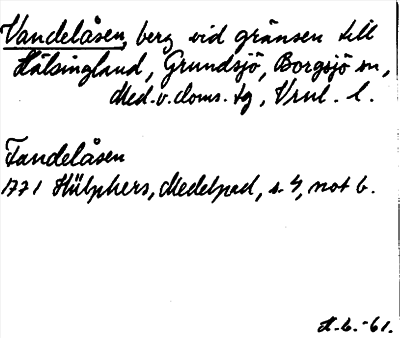 Vandelåsen, berg vid gränsen till
Hälsingland, Grundsjö, Borgsjö sn,
Med. v. doms. tg, Vrnl. l.
Fandelåsen
1771 Hülphers, Medelpad, s. 4, not b.
H.G.-61.